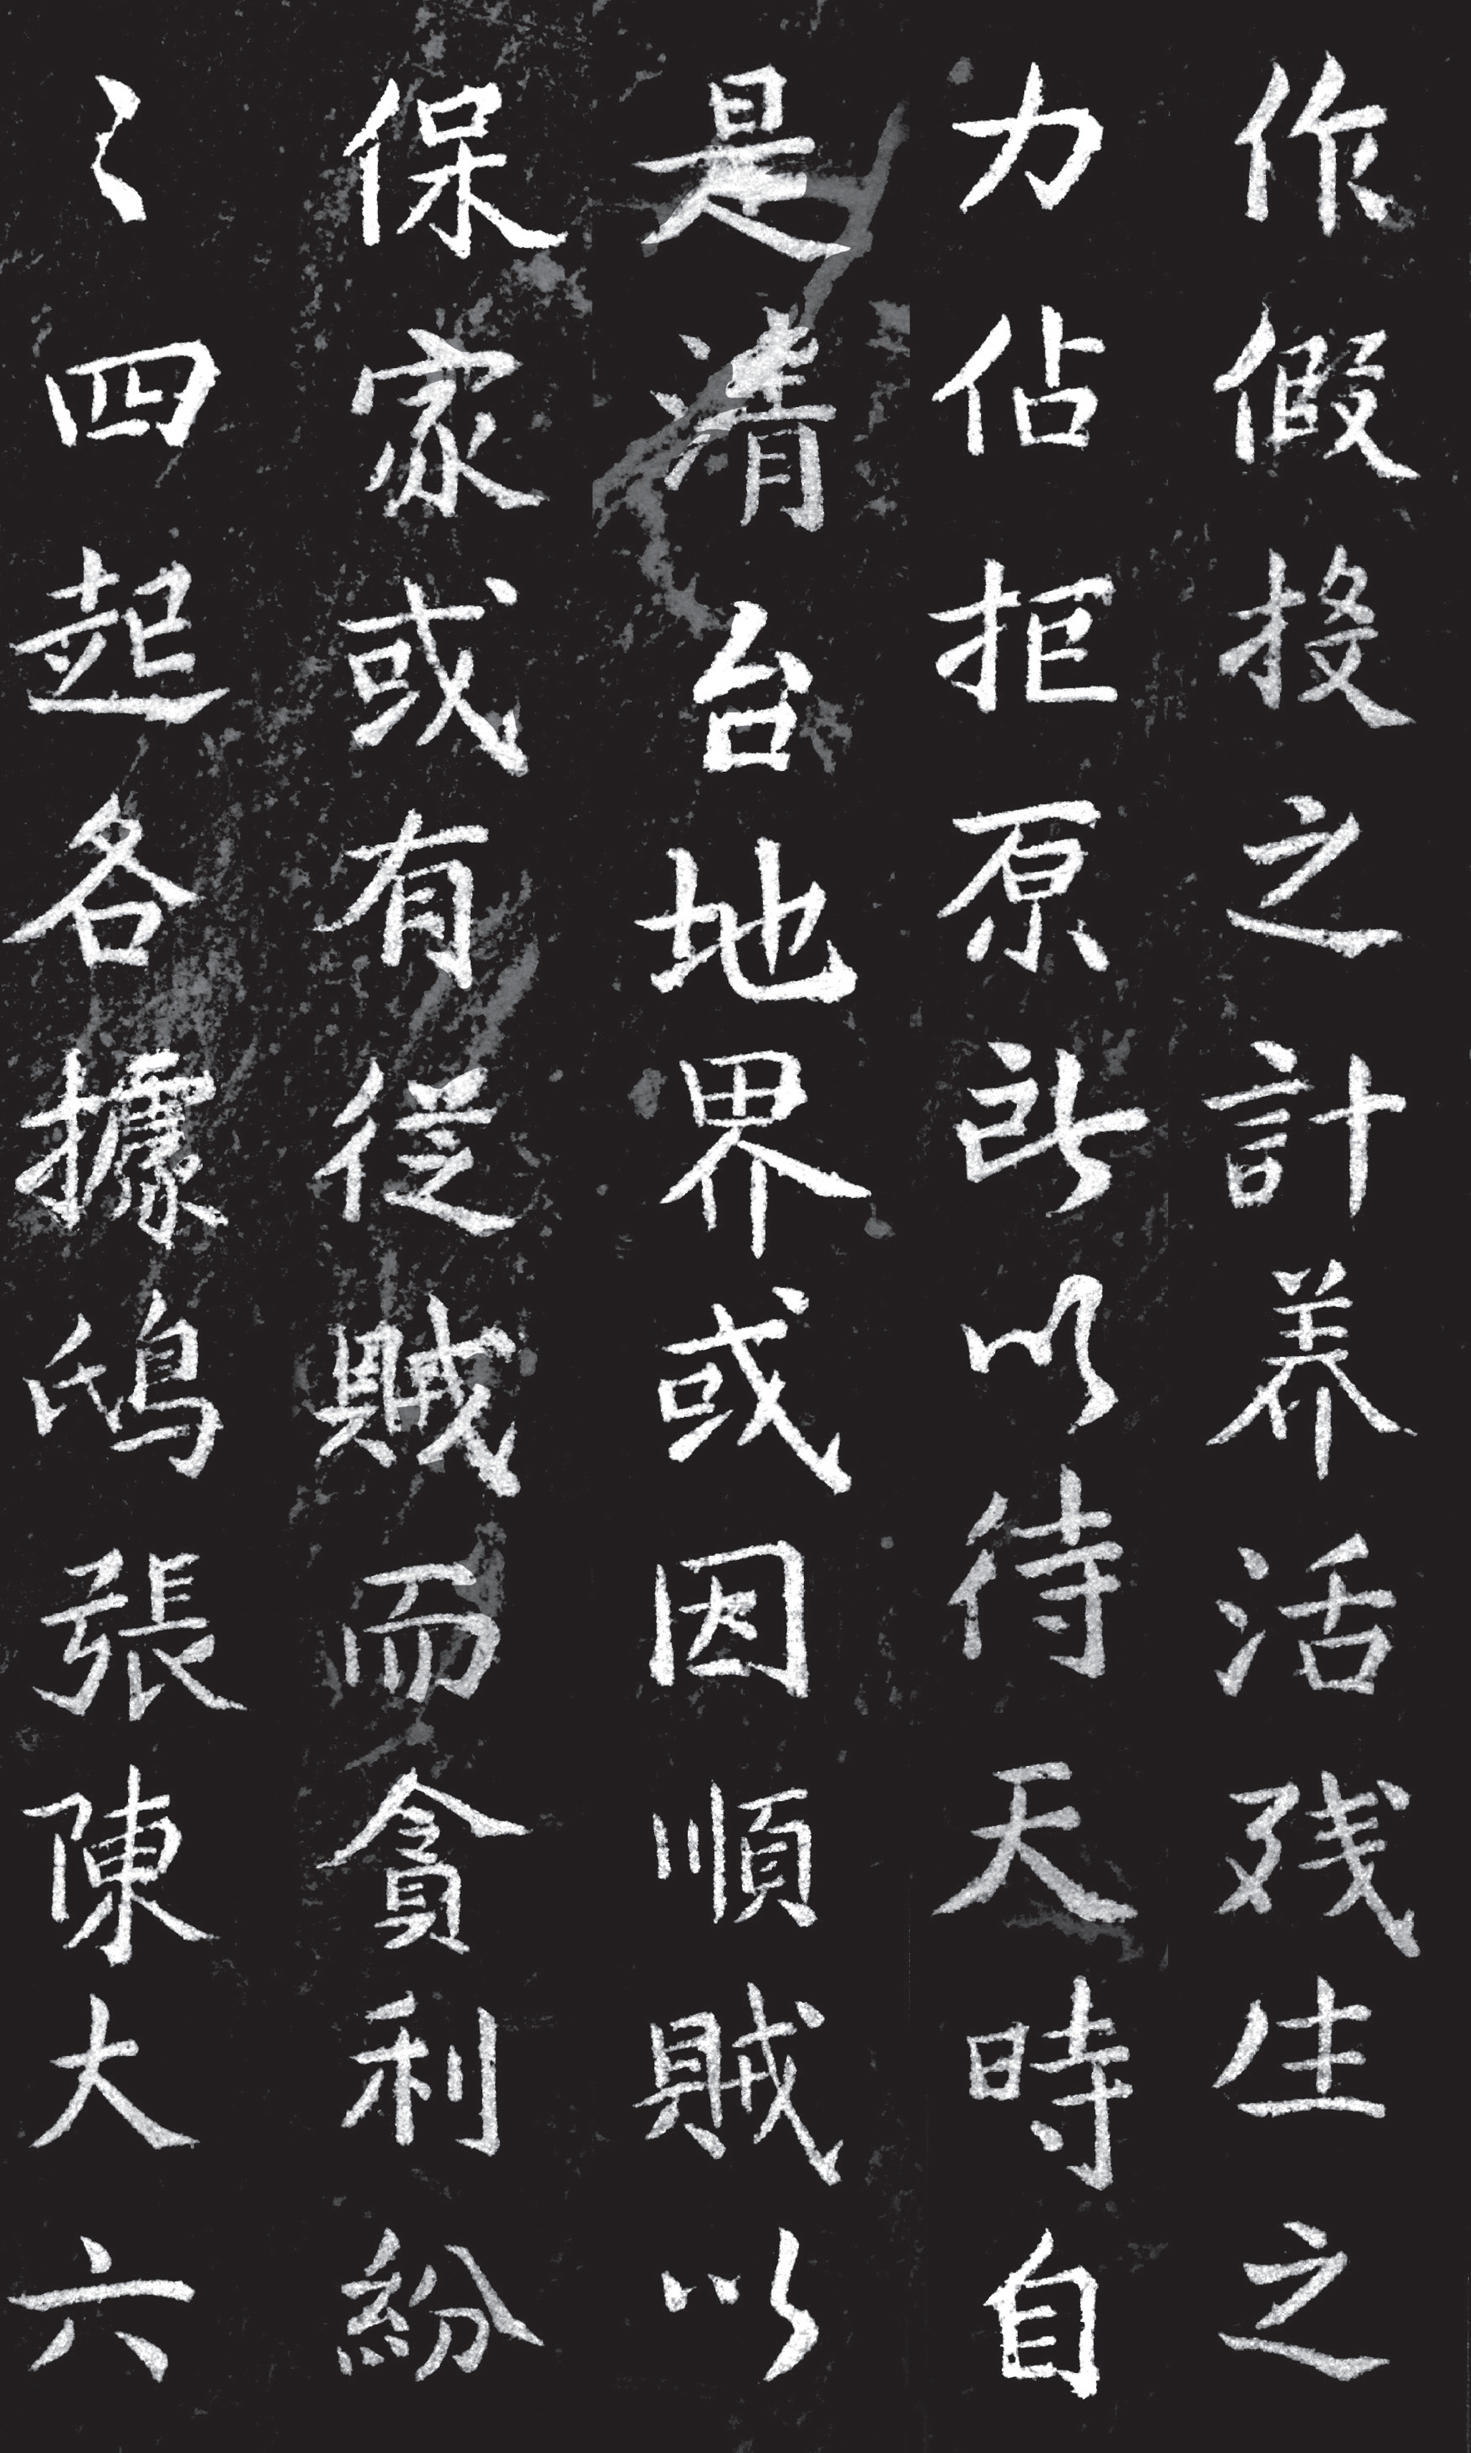 作假投之計养活残生之
力佔拒原所以待天時自
是清台地界或因順賊以
保家或有従賊而貪利紛
〻四起各據鴟張陳大六